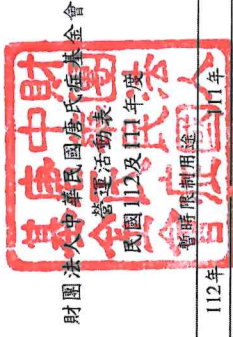 財團法人中華民國唐氏症基金會
營運活動表
民國112及111年度
暫時限制用途
112年 111年